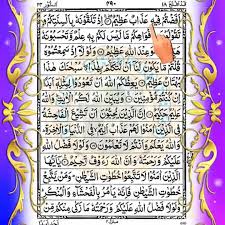 النور ٢٤
قد افلح ١٨
اَفَضْتُمْ فِیْهِ عَذَابٌ عَظِیْمٌ اِذْ تَلَقَّوْنَهٗ بِاَلْسِنَتِكُمْ وَ
تَقُوْلُوْنَ بِاَفْوَاهِكُمْ مَّا لَیْسَ لَكُمْ بِهٖ عِلْمٌ وَّتَحْسَبُوْنَهٗ
هَیِّنًا وَّهُوَ عِنْدَ اللّٰهِ عَظِیْمٌ وَلَوْلَاۤ اِذْ سَمِعْتُمُوْهُ
قُلْتُمْ مَّا یَكُوْنُ لَنَاۤ اَنْ نَّتَكَلَّمَ بِهٰذَا سُبْحٰنَكَ هٰذَا
بُهْتَانٌ عَظِیْمٌ یَعِظُكُمُ اللّٰهُ اَنْ تَعُوْدُوْا لِمِثْلِهٖۤ اَبَدًا
اِنْ كُنْتُمْ مُّؤْمِنِیْنَ وَیُبَیِّنُ اللّٰهُ لَكُمُ الْاٰیٰتِ وَاللّٰهُ عَلِیْمٌ
حَكِیْمٌ اِنَّ الَّذِیْنَ یُحِبُّوْنَ اَنْ تَشِیْعَ الْفَاحِشَةُ
فِی الَّذِیْنَ اٰمَنُوْا لَهُمْ عَذَابٌ اَلِیْمٌ فِی الدُّنْیَا وَالْاٰخِرَةِ
وَاللّٰهُ یَعْلَمُ وَاَنْتُمْ لَا تَعْلَمُوْنَ وَلَوْلَا فَضْلُ اللّٰهِ
عَلَیْكُمْ وَرَحْمَتُهٗ وَاَنَّ اللّٰهَ رَءُوْفٌ رَّحِیْمٌ یٰۤاَیُّهَا الَّذِیْنَ
اٰمَنُوْا لَا تَتَّبِعُوْا خُطُوٰتِ الشَّیْطٰنِ وَمَنْ یَّتَّبِعْ
خُطُوٰتِ الشَّیْطٰنِ فَاِنَّهٗ یَاْمُرُ بِالْفَحْشَآءِ وَالْمُنْكَرِ
وَلَوْلَا فَضْلُ اللّٰهِ عَلَیْكُمْ وَرَحْمَتُهٗ مَا زَكٰی مِنْكُمْ